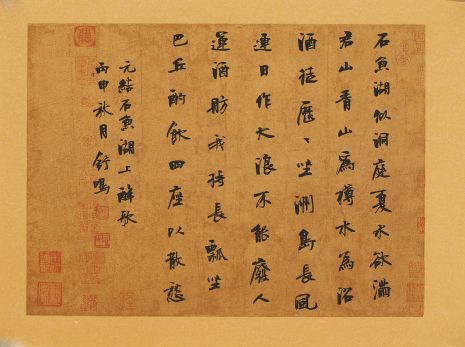 石魚湖似洞庭夏水欲滿
君山青山為樽水為沼
酒徒歷〻坐洲島長風
連日作大浪不能廢人
運酒舫我持長瓢坐
巴丘酌飲四座以散愁
元結石魚湖上醉歌
丙申秋月舒鳴